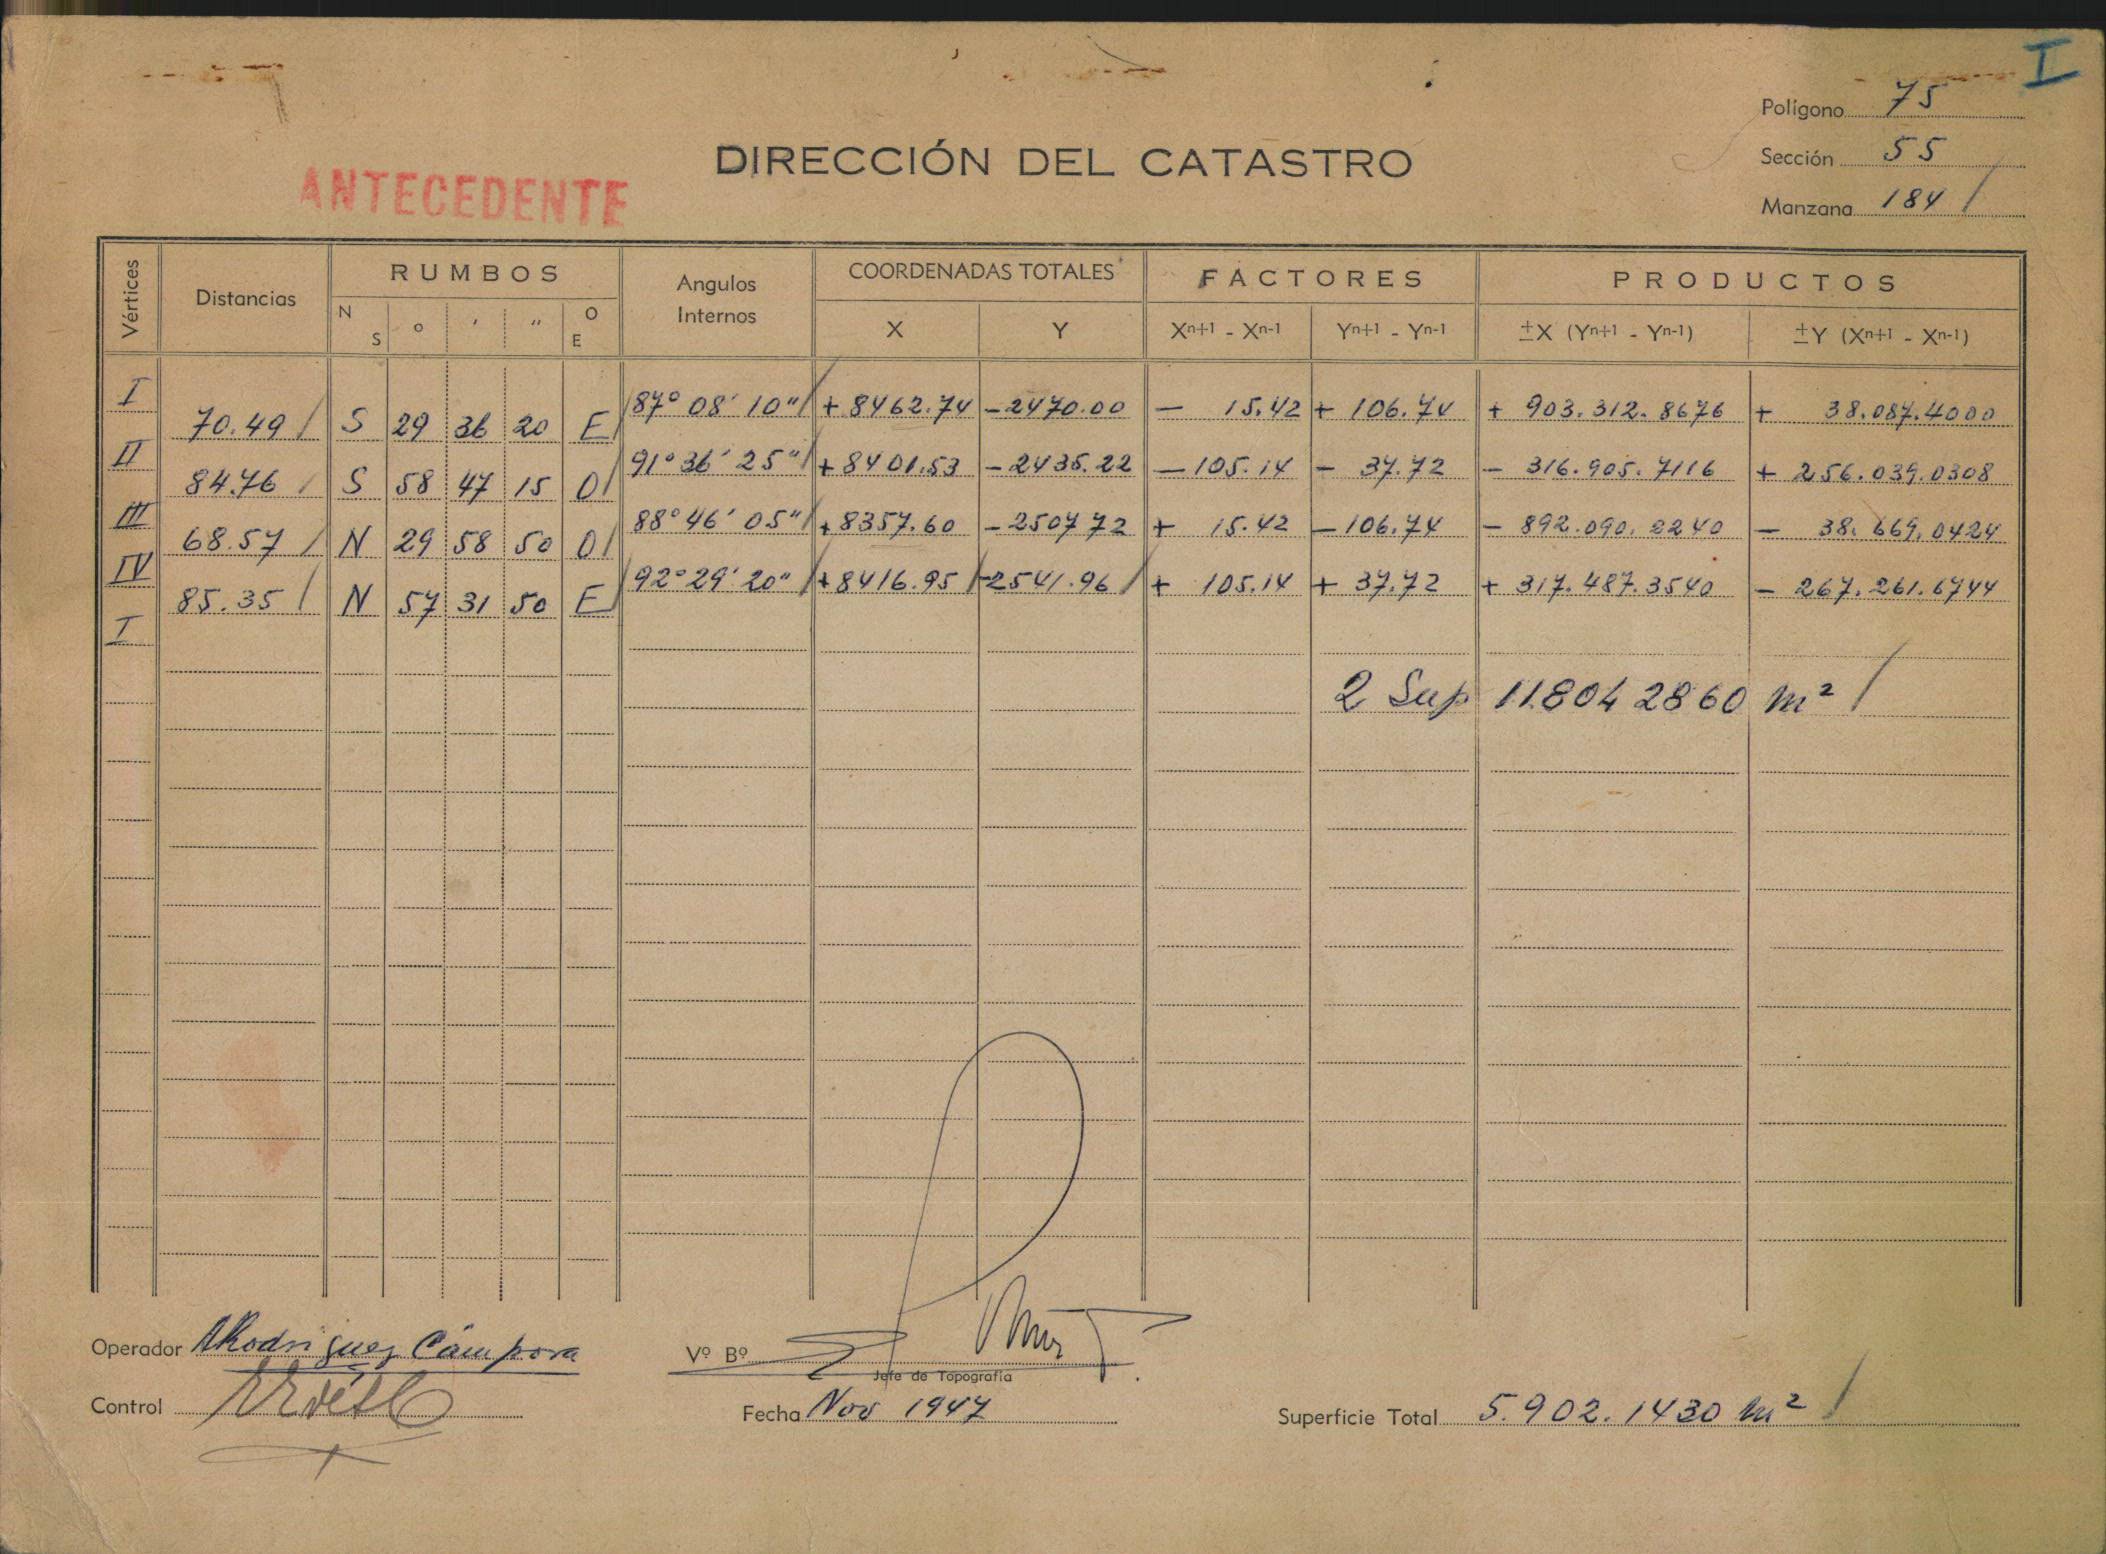 I
Polígono 75
Sección 55
Manzana 184
DIRECCIÓN DEL CATASTRO
ANTECEDENTE
Vértices Distancias RUMBOS Angulos Internos COORDENADAS TOTALES FACTORES PRODUCTOS
N S ° ' " O E X Y Xn+1 - Xn-1 Yn+1 - Yn-1 ±X (Yn+1 - Yn-1) ±Y (Xn+1 - Xn-1)
I 87° 08' 10" + 8462.74 - 2470.00 - 15.42 + 106.74 + 903.312.8676 + 38.087.4000
70.49 S 29 36 20 E
II 91° 36' 25" + 8401.53 - 2435.22 - 105.14 - 37.72 - 316.905.7116 + 256.039.0308
84.76 S 58 47 15 O
III 88° 46' 05" + 8357.60 - 2507 72 + 15.42 - 106.74 - 892.090.2240 - 38.669.0424
68.57 N 29 58 50 O
IV 92° 29' 20" + 8416.95 - 2541.96 + 105.14 + 37.72 + 317.487.3540 - 267.261.6744
85.35 N 57 31 50 E
I
2 Sup 11.804 2860 m²
Operador ARodriguez Cámpora
Vº Bº
Jefe de Topografía
Control
Fecha Nov 1947
Superficie Total 5.902.1430 m²